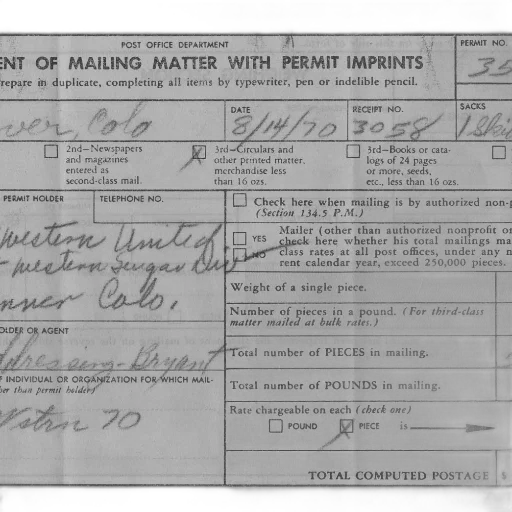 POST OFFICE DEPARTMENT
PERMIT NO.
ENT OF MAILING MATTER WITH PERMIT IMPRINTS
35
repare in duplicate, completing all items by typewriter, pen or indelible pencil.
DATE
RECEIPT NO.
SACKS
ver, Colo
8/14/70
3058
1 Skid
2nd—Newspapers
and magazines
entered as
second-class mail.
3rd—Circulars and
other printed matter,
merchandise less
than 16 ozs.
3rd—Books or cata-
logs of 24 pages
or more, seeds,
etc., less than 16 ozs.
PERMIT HOLDER
TELEPHONE NO.
Western United
Western Sugar Div
nver Colo.
Check here when mailing is by authorized non-p
(Section 134.5 P.M.)
YES
NO
Mailer (other than authorized nonprofit or
check here whether his total mailings ma
class rates at all post offices, under any n
rent calendar year, exceed 250,000 pieces.
Weight of a single piece.
Number of pieces in a pound. (For third-class
matter mailed at bulk rates.)
OLDER OR AGENT
ddressing-Bryant
Total number of PIECES in mailing.
F INDIVIDUAL OR ORGANIZATION FOR WHICH MAIL-
her than permit holder)
Wstrn 70
Total number of POUNDS in mailing.
Rate chargeable on each (check one)
POUND
PIECE
is
TOTAL COMPUTED POSTAGE
$